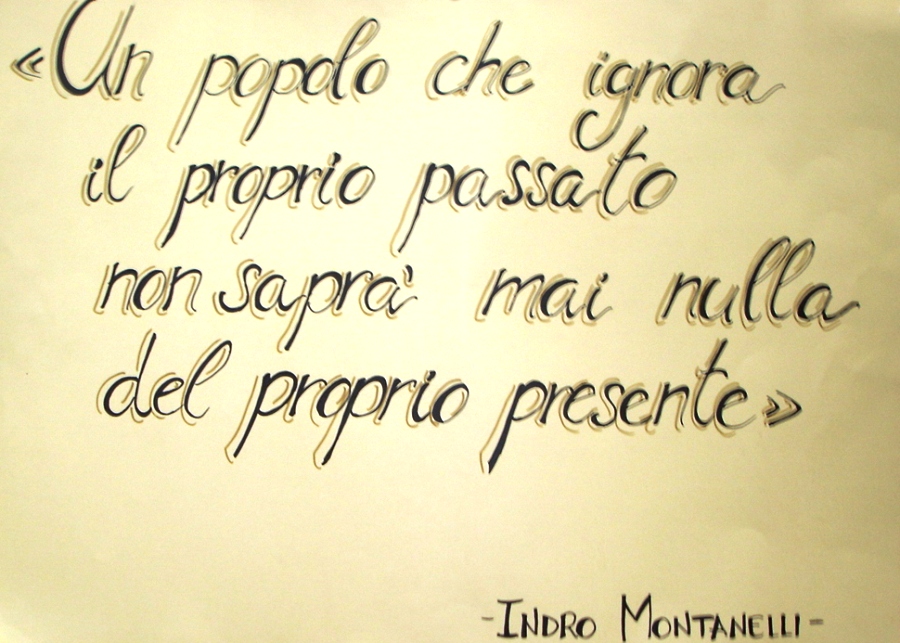 «Un popolo che ignora
il proprio passato
non saprà mai nulla
del proprio presente»
-INDRO MONTANELLI-